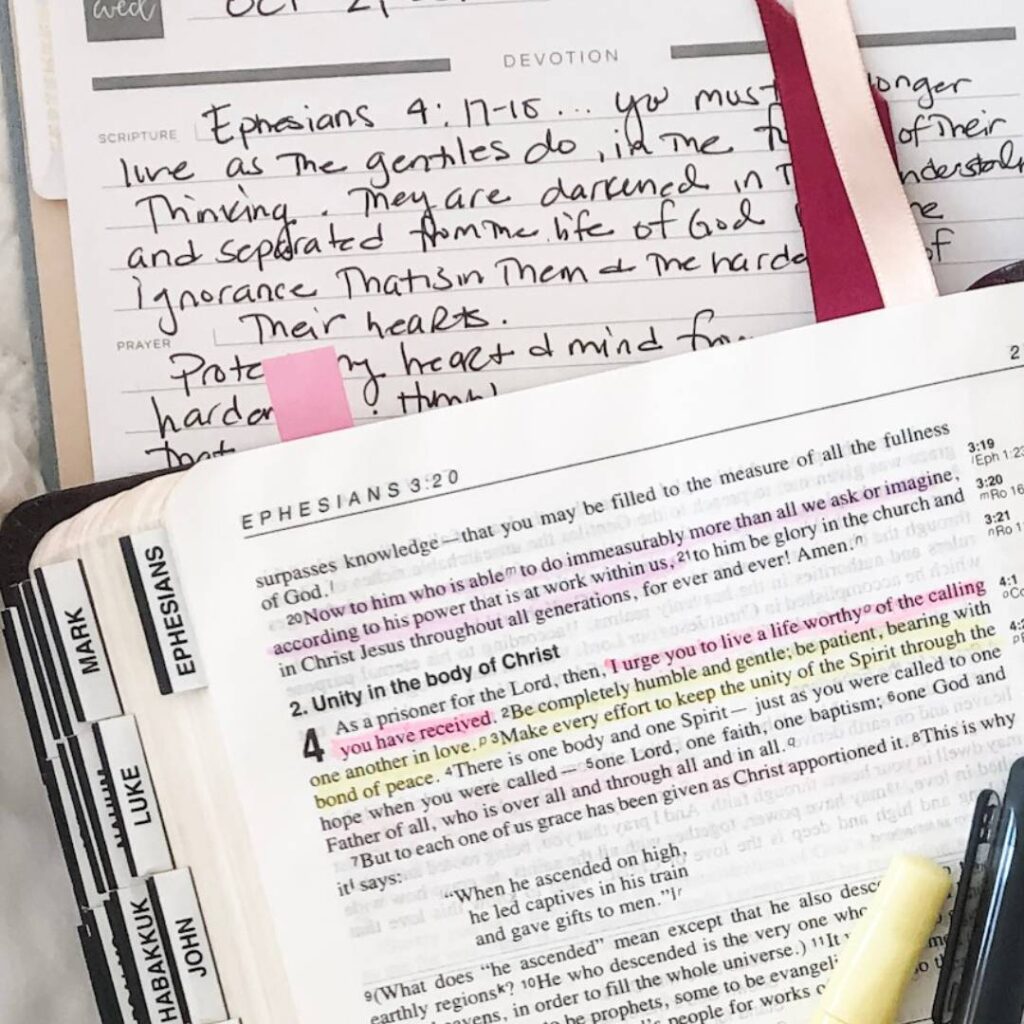 wed
DEVOTION
SCRIPTURE Ephesians 4:17-18 ... you must longer
live as The gentiles do, in The of Their
Thinking. They are darkened in
and separated from the life of God
ignorance That is in Them & The of
Their hearts.
PRAYER
heart & mind
That
EPHESIANS 3:20
surpasses knowledge—that you may be filled to the measure of all the fullness
of God.
20Now to him who is able to do immeasurably more than all we ask or imagine,
according to his power that is at work within us, 21to him be glory in the church and
in Christ Jesus throughout all generations, for ever and ever! Amen.
2. Unity in the body of Christ
4 As a prisoner for the Lord, then, I urge you to live a life worthy of the calling
you have received. 2Be completely humble and gentle; be patient, bearing with
one another in love. 3Make every effort to keep the unity of the Spirit through the
bond of peace. 4There is one body and one Spirit— just as you were called to one
hope when you were called— 5one Lord, one faith, one baptism; 6one God and
Father of all, who is over all and through all and in all.
7But to each one of us grace has been given as Christ apportioned it. 8This is why
it says:
“When he ascended on high,
he led captives in his train
and gave gifts to men.”
9(What does “he ascended” mean except that he also
earthly regions? 10He who descended is the very one who
in order to fill the whole universe.) 11It
be prophets, some to be
people for works
3:19
Eph 1:23
3:20
Ro 16
3:21
Ro
4:1
EPHESIANS
MARK
LUKE
JOHN
HABAKKUK